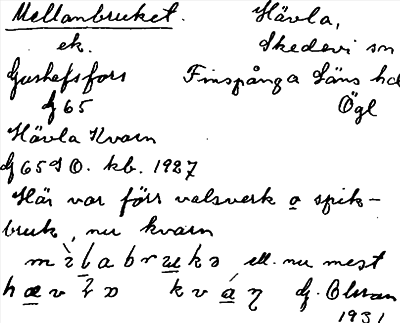 Mellanbruket. Hävla,
ek. Skedevi sn
Gushefsfors Finspånga Läns hd
f 65 Ögl
Hävla Kvarn
f 65 SO. kb. 1927
Här var förr valsverk o spik-
bruk, nu kvarn
ell. nu mest
Olsson
1931